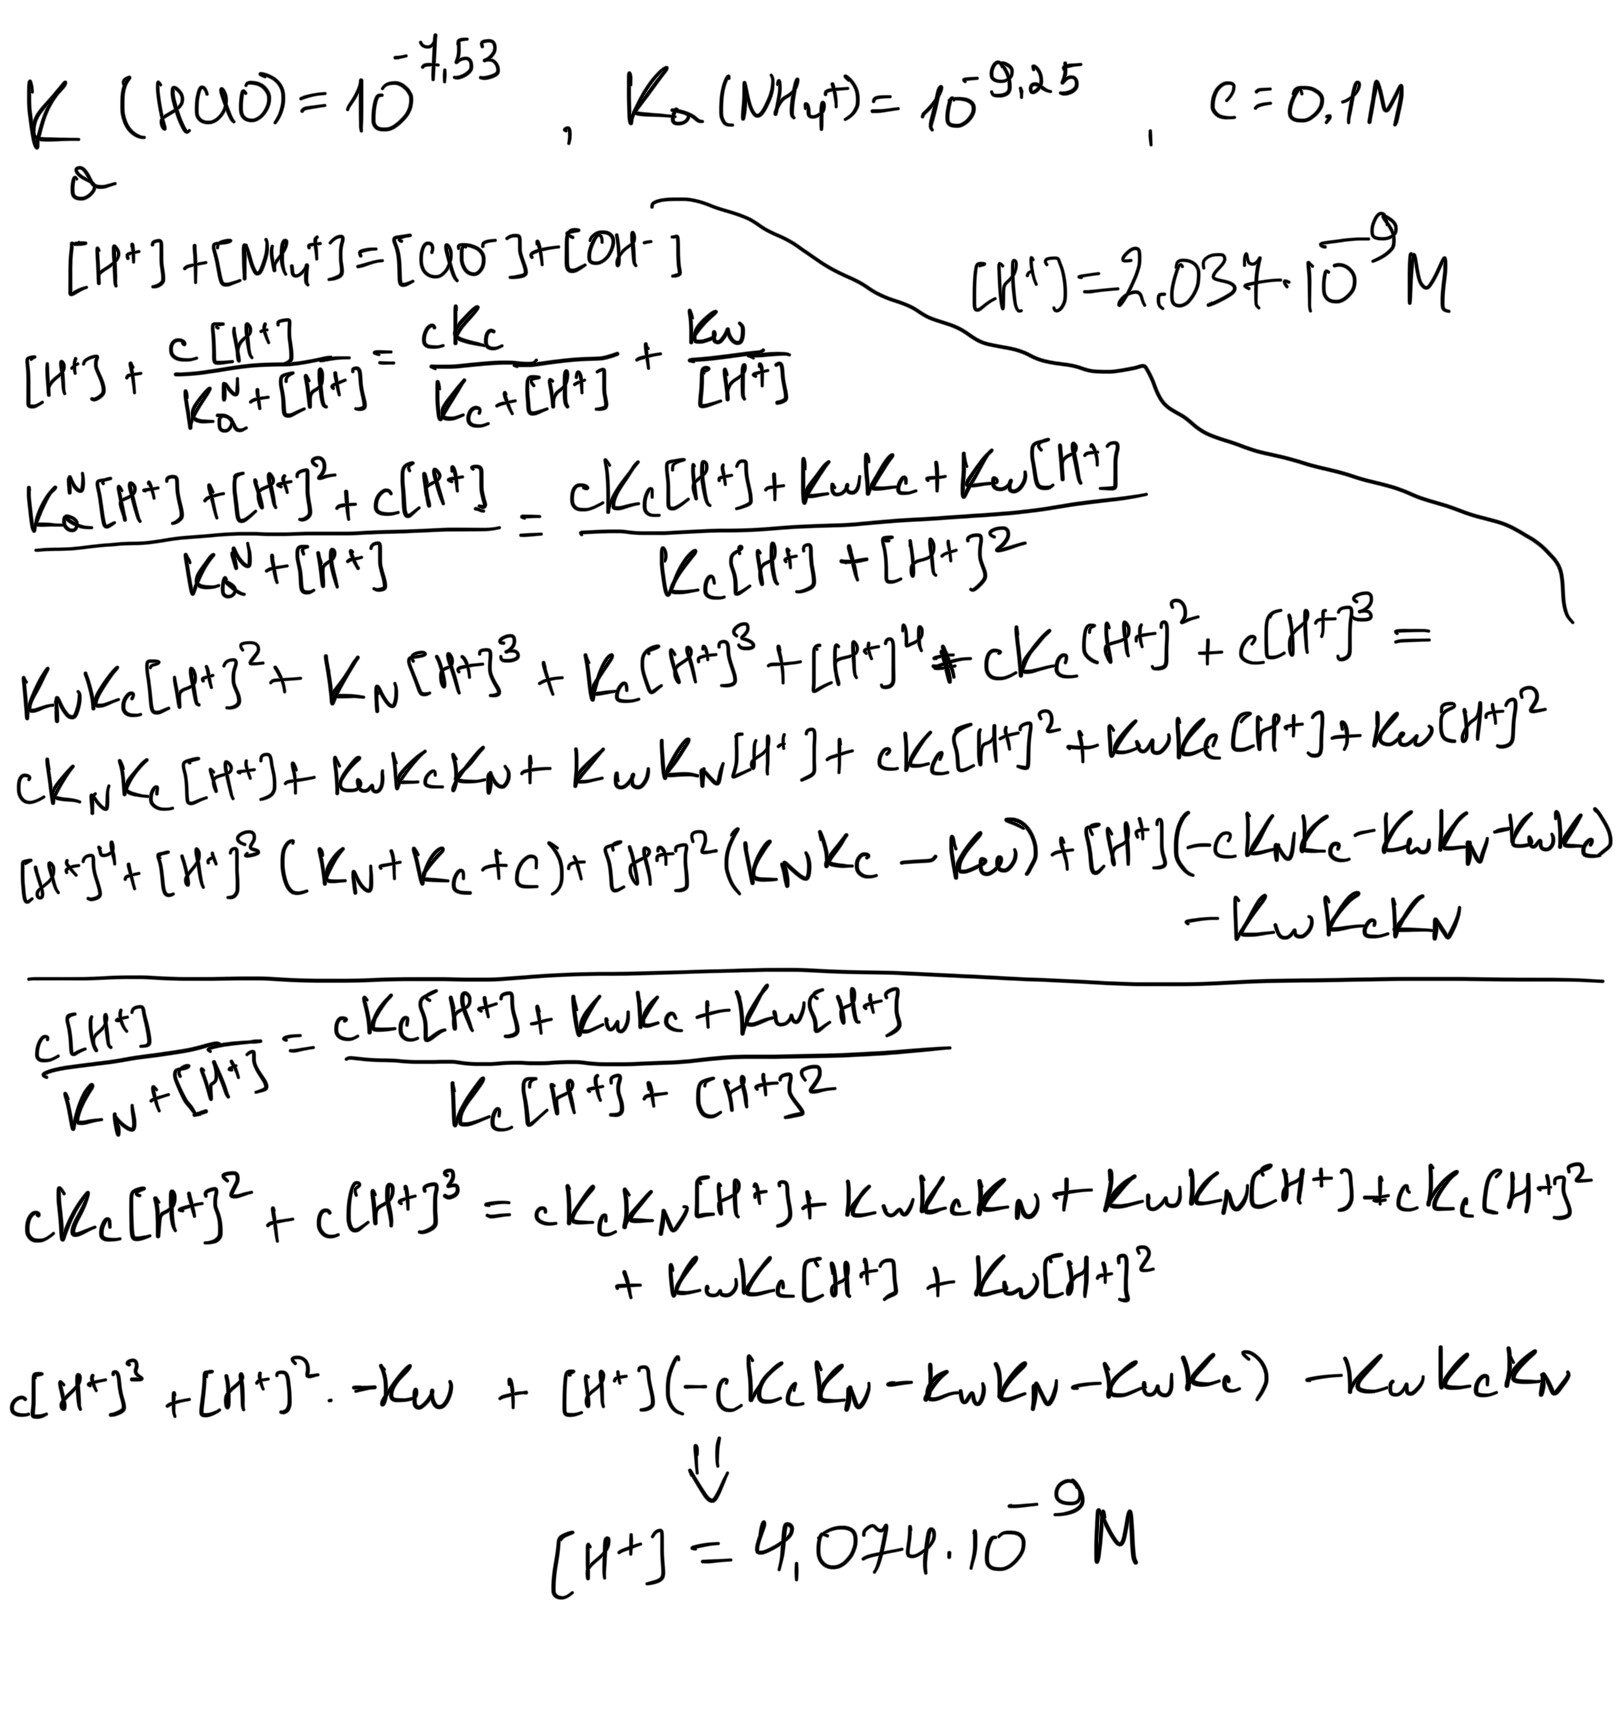 Ka (HClO) = 10^-7,53 , Ka (NH4+) = 10^-9,25 , c = 0,1M
[H+] + [NH4+] = [ClO-] + [OH-]
[H+] = 2,037·10^-9 M
[H+] + c[H+]/(Ka^N + [H+]) = cKc/(Kc + [H+]) + Kw/[H+]
(Ka^N[H+] + [H+]^2 + c[H+])/(Ka^N + [H+]) = (cKc[H+] + KwKc + Kw[H+])/(Kc[H+] + [H+]^2)
KNKc[H+]^2 + KN[H+]^3 + Kc[H+]^3 + [H+]^4 + cKc[H+]^2 + c[H+]^3 =
cKNKc[H+] + KwKcKN + KwKN[H+] + cKc[H+]^2 + KwKc[H+] + Kw[H+]^2
[H+]^4 + [H+]^3 (KN + Kc + c) + [H+]^2 (KNKc - Kw) + [H+](-cKNKc - KwKN - KwKc)
- KwKcKN
c[H+]/(KN + [H+]) = (cKc[H+] + KwKc + Kw[H+])/(Kc[H+] + [H+]^2)
cKc[H+]^2 + c[H+]^3 = cKcKN[H+] + KwKcKN + KwKN[H+] + cKc[H+]^2
+ KwKc[H+] + Kw[H+]^2
c[H+]^3 + [H+]^2 · -Kw + [H+](-cKcKN - KwKN - KwKc) - KwKcKN
⇓
[H+] = 4,074·10^-9 M